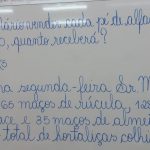 Mário vender cada pé de alfa
0, quanto receberá?
na segunda-feira Sr. M
65 maços de rúcula, 128
ace e 35 maços de almei
total de hortaliças colhi